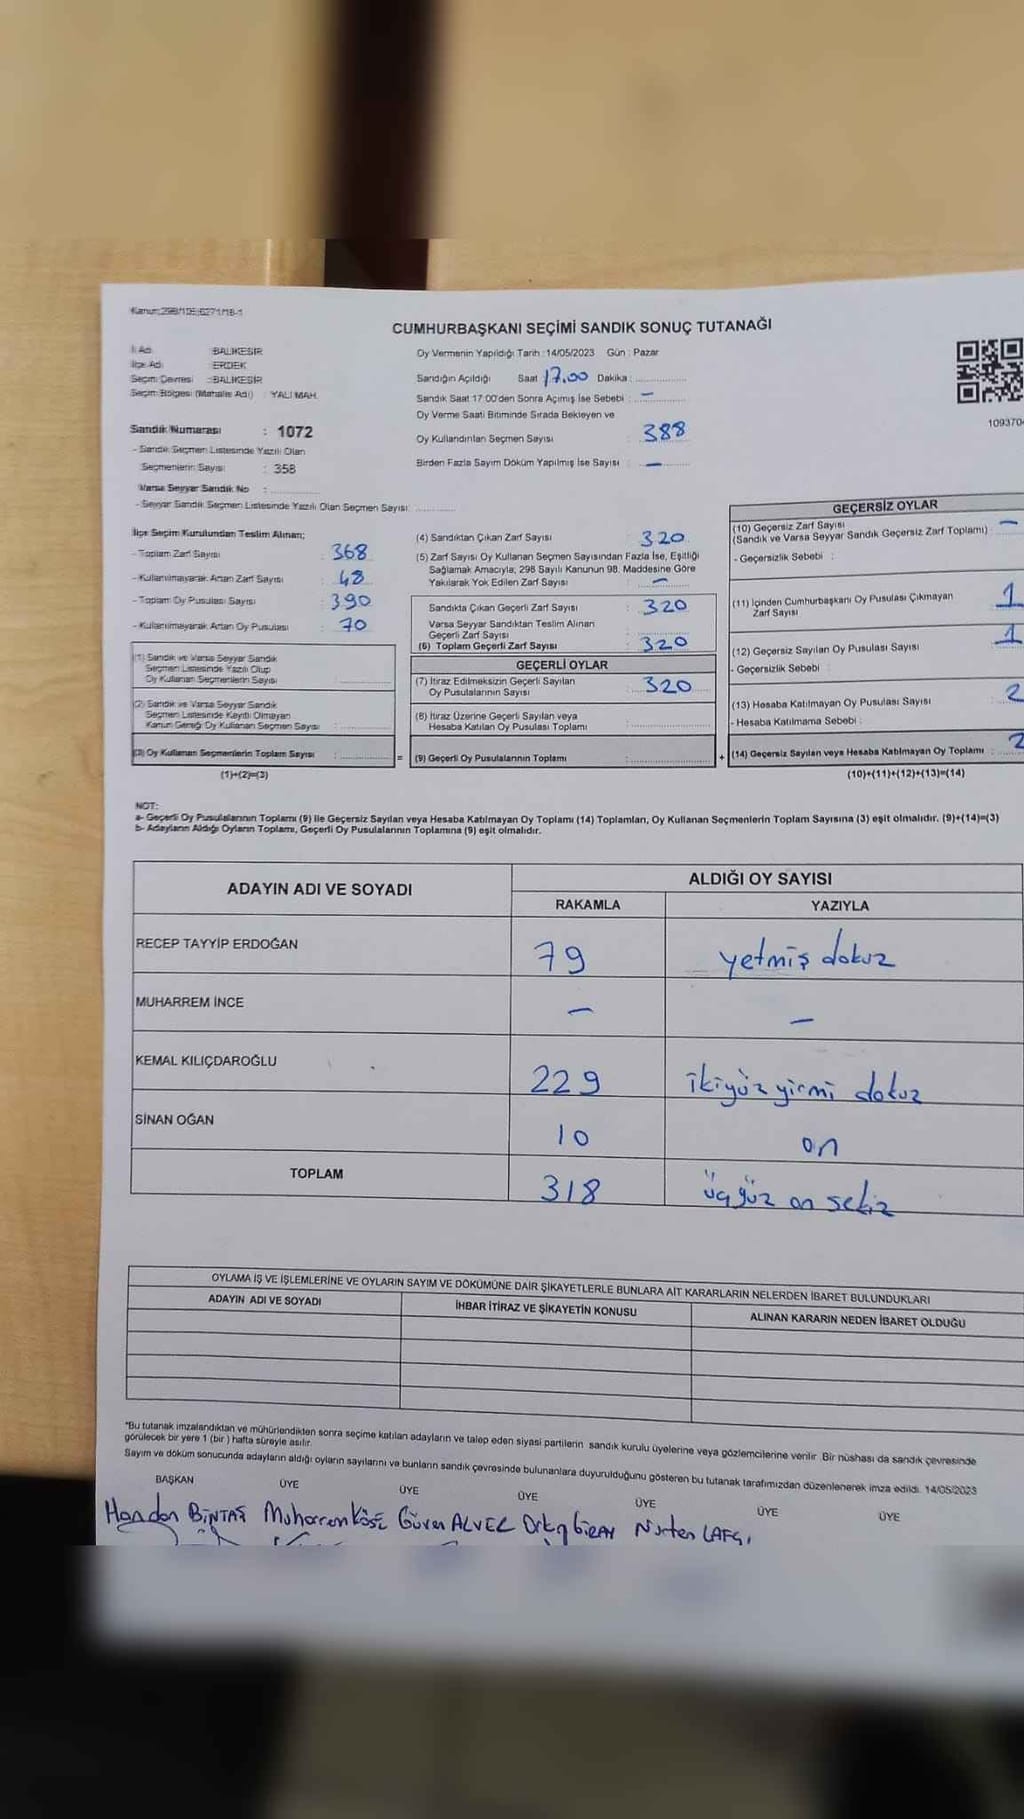 CUMHURBAŞKANI SEÇİMİ SANDIK SONUÇ TUTANAĞI
İl Adı : BALIKESİR
İlçe Adı : ERDEK
Seçim Çevresi : BALIKESİR
Seçim Bölgesi (Mahalle Adı) YALI MAH.
Sandık Numarası : 1072
- Sandık Seçmen Listesinde Yazılı Olan
Seçmenlerin Sayısı : 358
Varsa Seyyar Sandık No :
- Seyyar Sandık Seçmen Listesinde Yazılı Olan Seçmen Sayısı:
Oy Vermenin Yapıldığı Tarih :14/05/2023 Gün : Pazar
Sandığın Açıldığı Saat 17.00 Dakika :
Sandık Saat 17:00'den Sonra Açımış İse Sebebi : –
Oy Verme Saati Bitiminde Sırada Bekleyen ve
Oy Kullandırılan Seçmen Sayısı 388
Birden Fazla Sayım Döküm Yapılmış İse Sayısı : –
109370
İlçe Seçim Kurulundan Teslim Alınan;
- Toplam Zarf Sayısı : 368
- Kullanılmayarak Artan Zarf Sayısı : 48
- Toplam Oy Pusulası Sayısı : 390
- Kullanılmayarak Artan Oy Pusulası : 70
(1) Sandık ve Varsa Seyyar Sandık
Seçmen Listesinde Yazılı Olup
Oy Kullanan Seçmenlerin Sayısı :
(2) Sandık ve Varsa Seyyar Sandık
Seçmen Listesinde Kayıtlı Olmayan
Kanun Gereği Oy Kullanan Seçmen Sayısı :
(3) Oy Kullanan Seçmenlerin Toplam Sayısı :
(1)+(2)=(3)
(4) Sandıktan Çıkan Zarf Sayısı : 320
(5) Zarf Sayısı Oy Kullanan Seçmen Sayısından Fazla İse, Eşitliği
Sağlamak Amacıyla; 298 Sayılı Kanunun 98. Maddesine Göre
Yakılarak Yok Edilen Zarf Sayısı : –
Sandıkta Çıkan Geçerli Zarf Sayısı : 320
Varsa Seyyar Sandıktan Teslim Alınan
Geçerli Zarf Sayısı :
(6) Toplam Geçerli Zarf Sayısı : 320
GEÇERLİ OYLAR
(7) İtiraz Edilmeksizin Geçerli Sayılan
Oy Pusulalarının Sayısı : 320
(8) İtiraz Üzerine Geçerli Sayılan veya
Hesaba Katılan Oy Pusulası Toplamı :
= (9) Geçerli Oy Pusulalarının Toplamı : +
GEÇERSİZ OYLAR
(10) Geçersiz Zarf Sayısı
(Sandık ve Varsa Seyyar Sandık Geçersiz Zarf Toplamı) : –
- Geçersizlik Sebebi :
(11) İçinden Cumhurbaşkanı Oy Pusulası Çıkmayan
Zarf Sayısı 1
(12) Geçersiz Sayılan Oy Pusulası Sayısı 1
- Geçersizlik Sebebi :
(13) Hesaba Katılmayan Oy Pusulası Sayısı : 2
- Hesaba Katılmama Sebebi :
(14) Geçersiz Sayılan veya Hesaba Katılmayan Oy Toplamı : 2
(10)+(11)+(12)+(13)=(14)
NOT:
a- Geçerli Oy Pusulalarının Toplamı (9) ile Geçersiz Sayılan veya Hesaba Katılmayan Oy Toplamı (14) Toplamları, Oy Kullanan Seçmenlerin Toplam Sayısına (3) eşit olmalıdır. (9)+(14)=(3)
b- Adayların Aldığı Oyların Toplamı, Geçerli Oy Pusulalarının Toplamına (9) eşit olmalıdır.
ADAYIN ADI VE SOYADI ALDIĞI OY SAYISI
RAKAMLA YAZIYLA
RECEP TAYYİP ERDOĞAN 79 yetmiş dokuz
MUHARREM İNCE – –
KEMAL KILIÇDAROĞLU 229 ikiyüz yirmi dokuz
SİNAN OĞAN 10 on
TOPLAM 318 üçyüz on sekiz
OYLAMA İŞ VE İŞLEMLERİNE VE OYLARIN SAYIM VE DÖKÜMÜNE DAİR ŞİKAYETLERLE BUNLARA AİT KARARLARIN NELERDEN İBARET BULUNDUKLARI
ADAYIN ADI VE SOYADI İHBAR İTİRAZ VE ŞİKAYETİN KONUSU ALINAN KARARIN NEDEN İBARET OLDUĞU
*Bu tutanak imzalandıktan ve mühürlendikten sonra seçime katılan adayların ve talep eden siyasi partilerin sandık kurulu üyelerine veya gözlemcilerine verilir. Bir nüshası da sandık çevresinde
görülecek bir yere 1 (bir) hafta süreyle asılır.
Sayım ve döküm sonucunda adayların aldığı oyların sayılarını ve bunların sandık çevresinde bulunanlara duyurulduğunu gösteren bu tutanak tarafımızdan düzenlenerek imza edildi. 14/05/2023
BAŞKAN ÜYE ÜYE ÜYE ÜYE ÜYE ÜYE
Handan BİNTAŞ Muharrem KÖSE Güven ALVER GİRAY Nurten